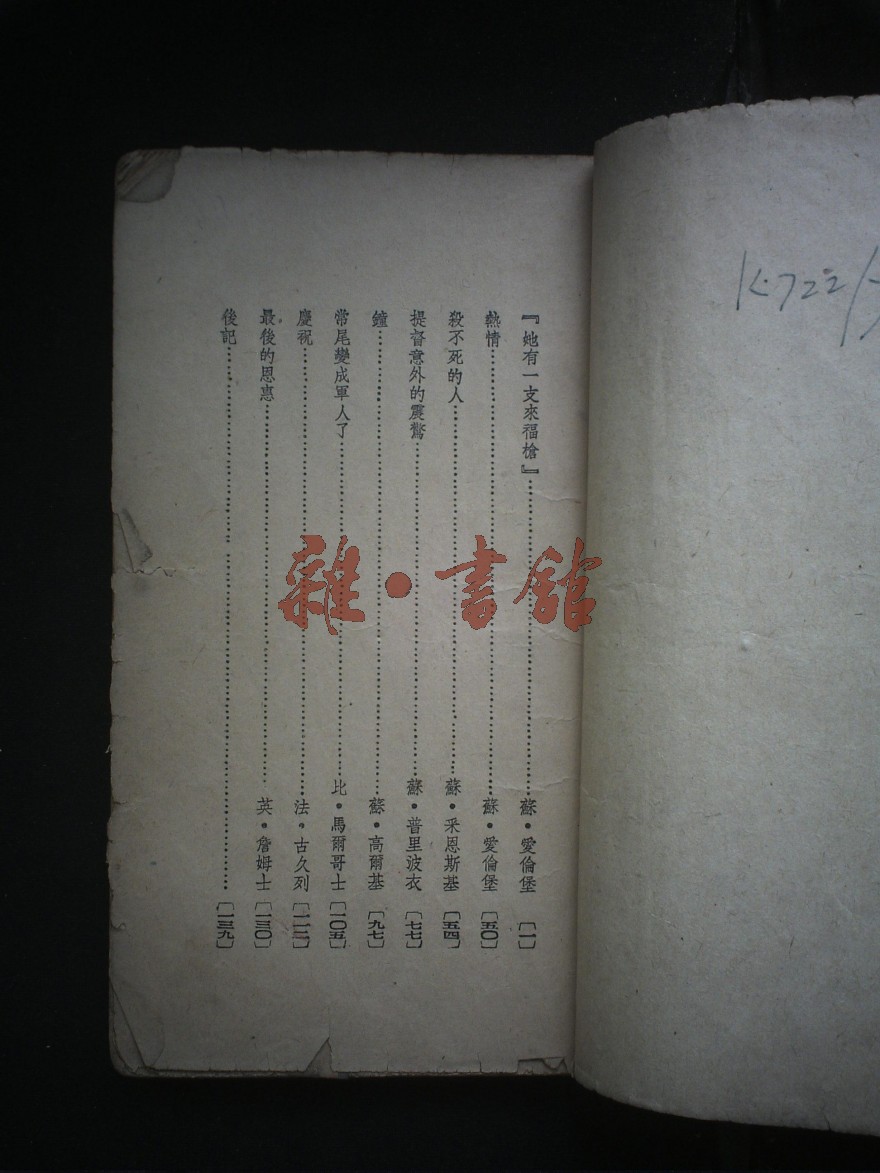 『她有一支來福槍』……蘇•愛倫堡〔一〕
熱情……蘇•愛倫堡〔五〇〕
殺不死的人……蘇•釆恩斯基〔五四〕
提督意外的震驚……蘇•普里波衣〔七七〕
鐘……蘇•高爾基〔九七〕
常尾變成軍人了……比•馬爾哥士〔一〇五〕
慶祝……法•古久列〔一一三〕
最後的恩惠……英•詹姆士〔一三〇〕
後記……〔一三九〕
雜•書館